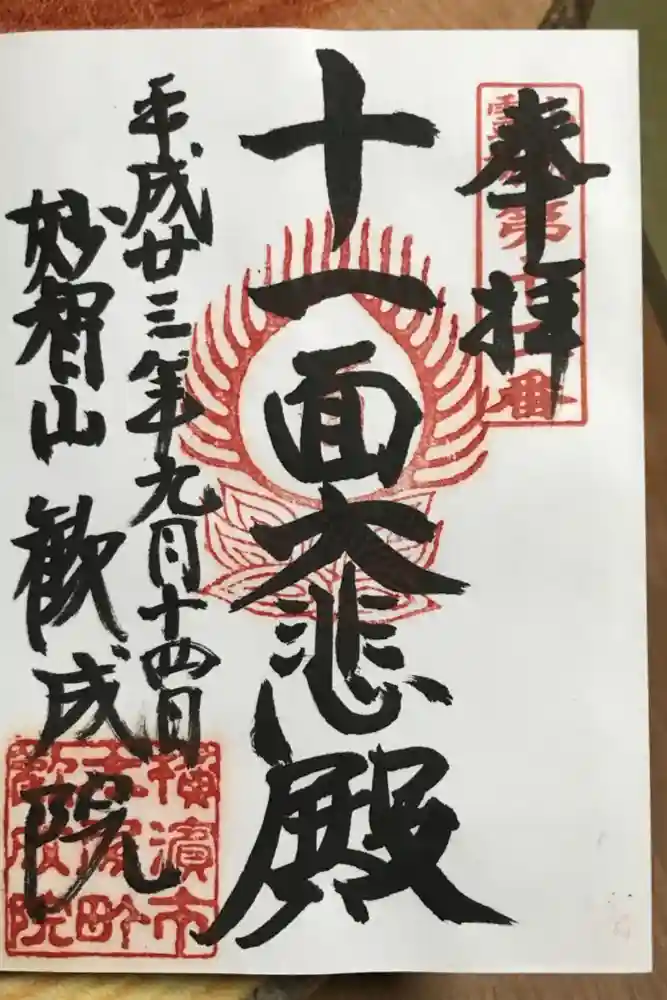 奉拝
第 番
十一面大悲殿
平成廿三年九月十四日
妙智山 歓成院
横濱市
太尾町
歡成院